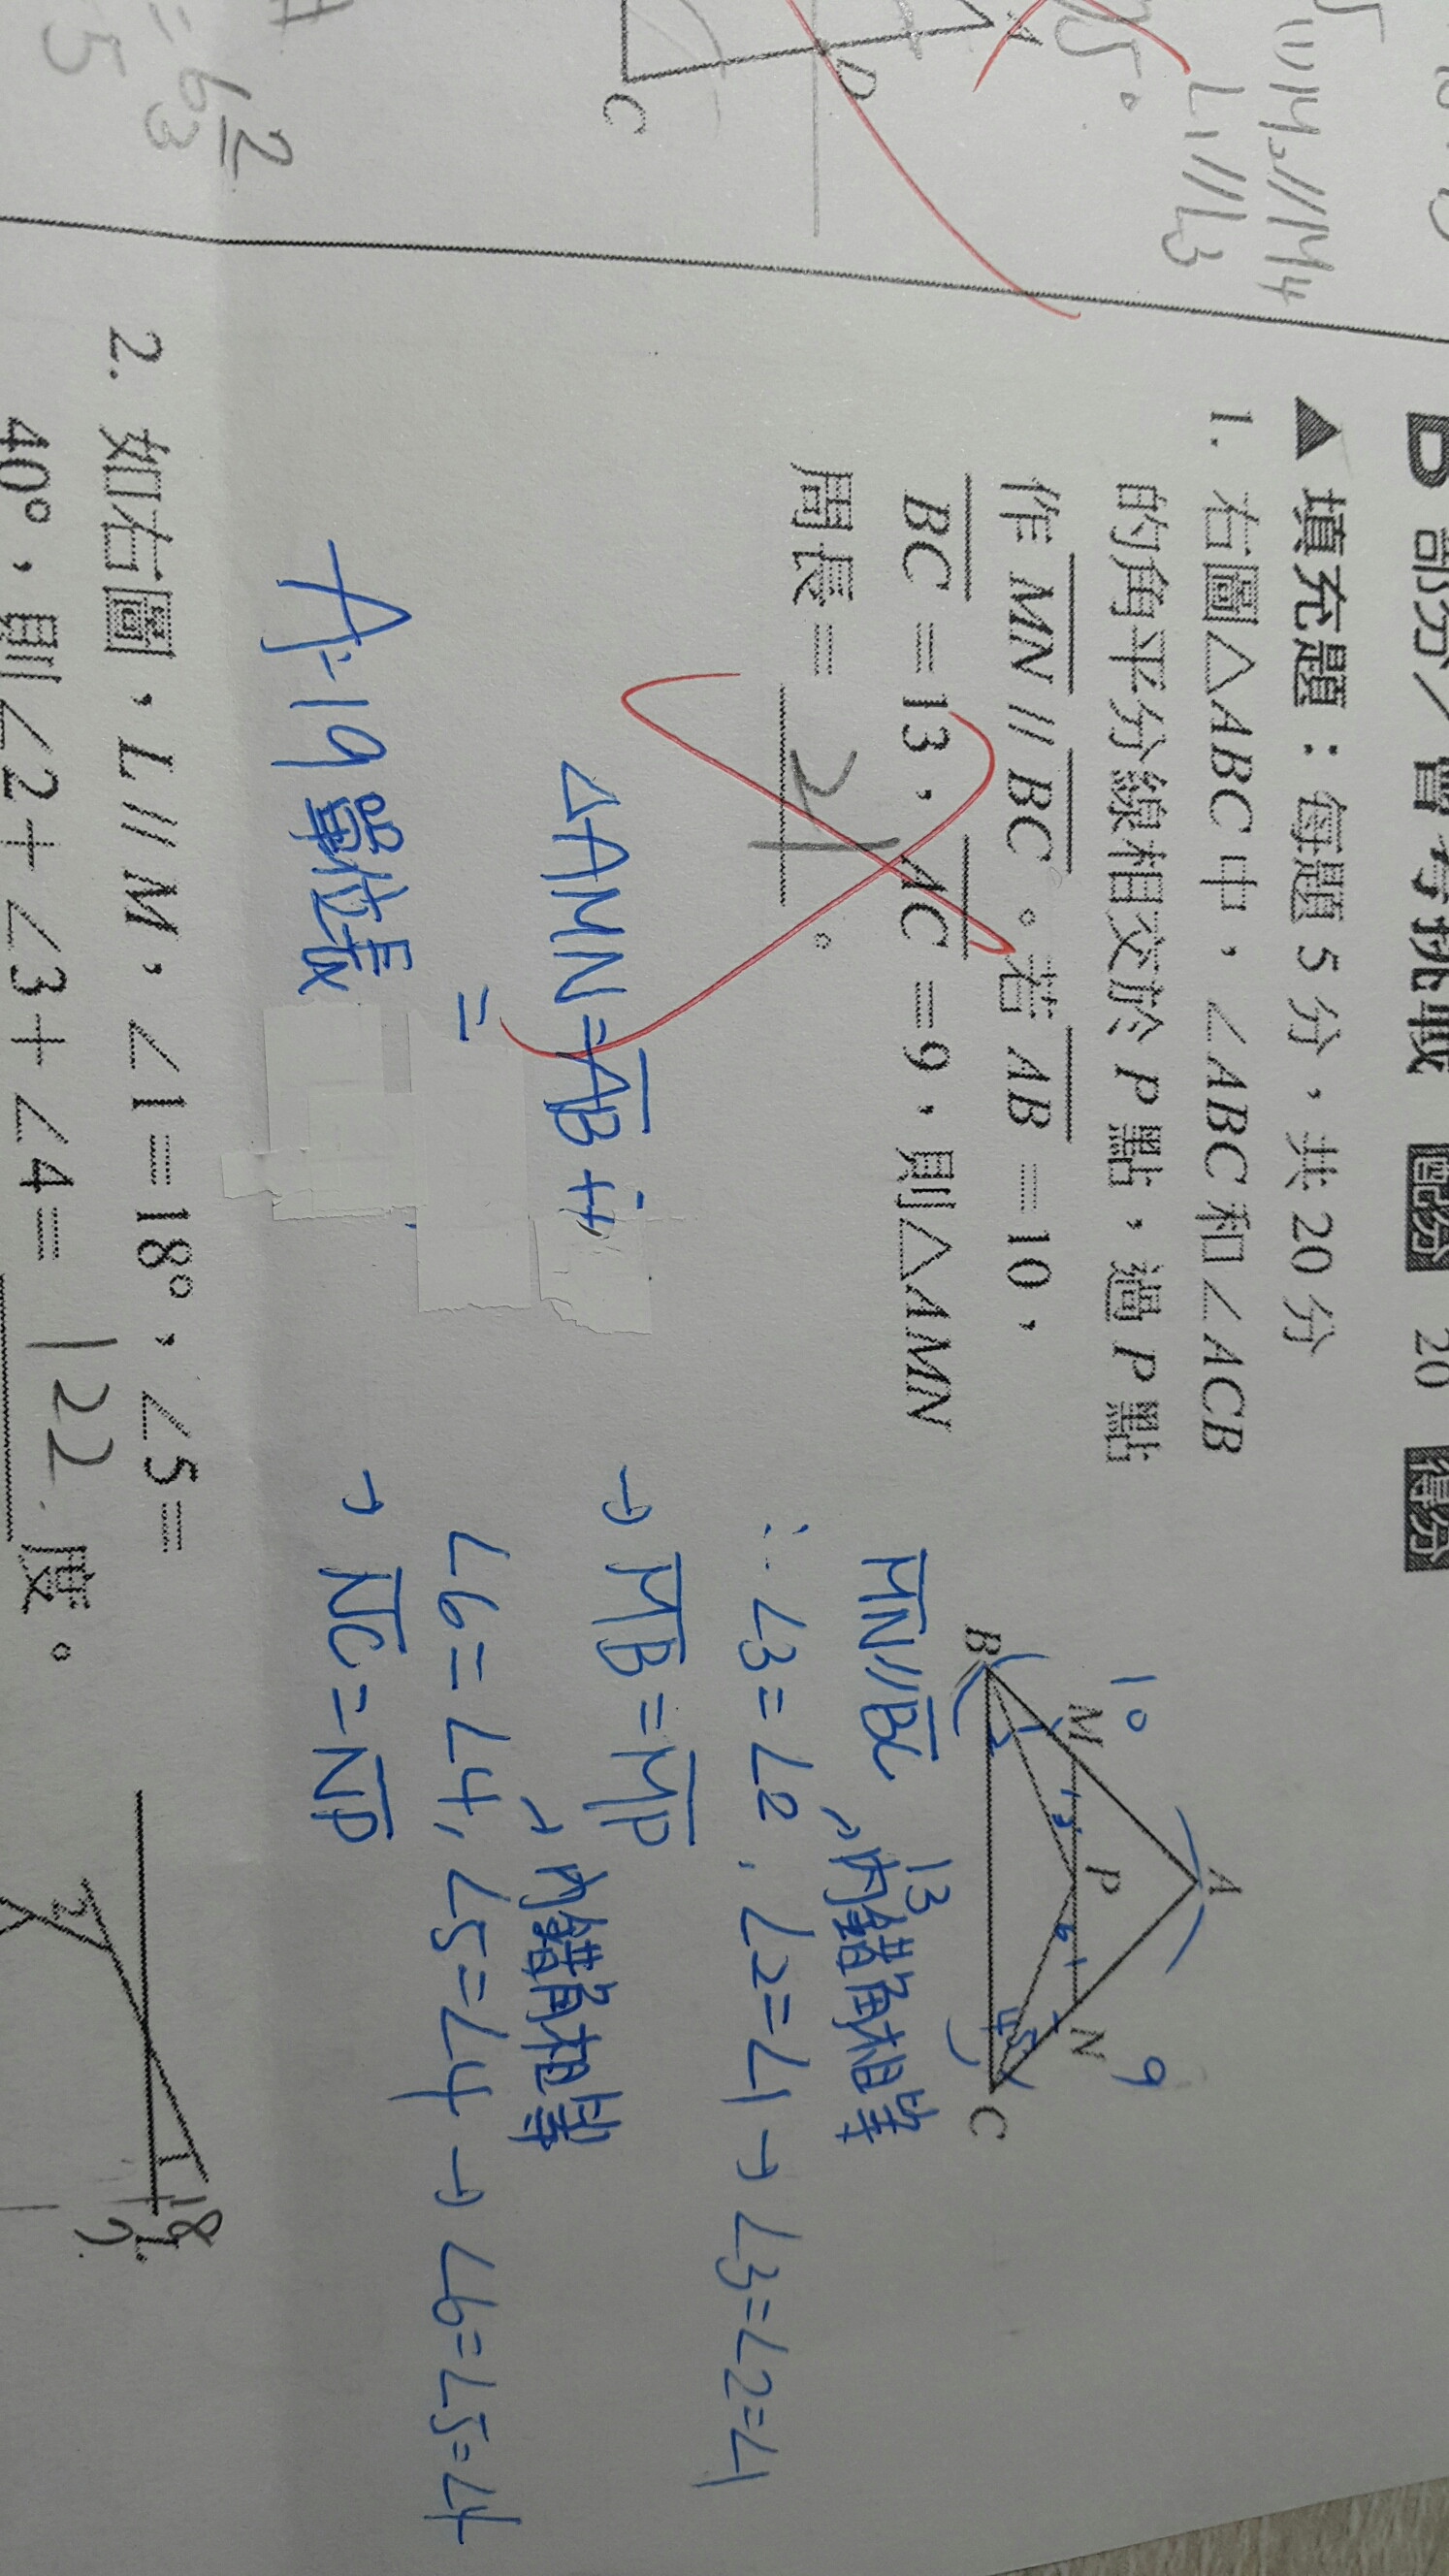 (1) M3//M4
L1//L3
75°
A
D
C
= 6 2/3
B 部分／會考挑戰 配分 20 得分
▲ 填充題：每題 5 分，共 20 分
1. 右圖△ABC 中，∠ABC 和∠ACB
的角平分線相交於 P 點，過 P 點
作 MN // BC。若 AB = 10，
BC = 13，AC = 9，則△AMN
周長 = 21 。
A
10
M
P
N
9
B
C
13
1
2
3
6
4
5
MN//BC
→內錯角相等
∴∠3=∠2，∠2=∠1→∠3=∠2=∠1
→MB=MP
→內錯角相等
∠6=∠4，∠5=∠4→∠6=∠5=∠4
→NC=NP
△AMN=AB+
=
A:19單位長
2. 如右圖，L // M，∠1=18°，∠5=
40°，則∠2+∠3+∠4= 122 度。
1
18
L
2